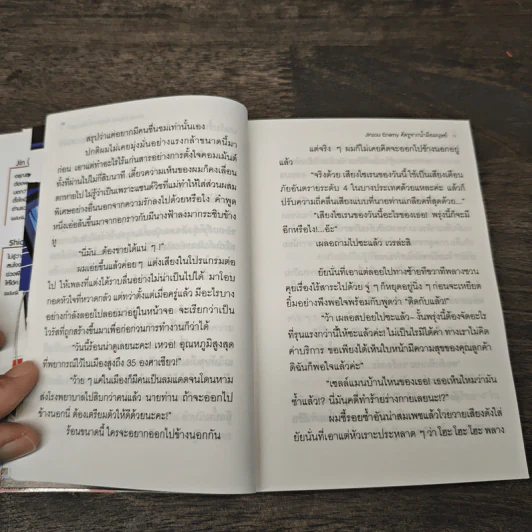 สรุปว่าแค่อยากมีคนชื่นชมเท่านั้นเอง
ปกติผมไม่เคยมุ่งมั่นอย่างแรงกล้าขนาดนี้มา
ก่อน เอาแต่ทำอะไรไร้แก่นสารอย่างการตั้งใจคอมเม้นต์
ทั้งที่ผ่านไปไม่กี่สิบนาที เดี๋ยวความเห็นของผมก็คงเลื่อน
ตกหายไป ไม่รู้ว่าเป็นเพราะแชนต์วิชที่แม่ทำให้ใส่ส่วนผสม
พิเศษอย่างอื่นนอกจากความรักลงไปด้วยหรือไง คำพูด
หนึ่งเอ่อล้นขึ้นมาจากอกราวกับมีนางฟ้าลงมากระซิบข้าง
หู
"นี่มัน...ต้องขายได้แน่ ๆ !"
ผมเอ่ยขึ้นแล้วค่อยๆ แต่งเสียงในโปรแกรมต่อ
ไป ให้เพลงที่แต่งได้ราบลื่นอย่างไม่น่าเป็นไปได้ มาโอบ
กอดหัวใจที่หวาดกลัว แต่ทว่าตั้งแต่เมื่อครู่แล้ว มีอะไรบาง
อย่างกำลังลอยไปลอยมาอยู่ในหน้าจอ จะเรียกว่าเป็น
ไวรัสที่ถูกสร้างขึ้นมาเพื่อก่อกวนการทำงานก็ว่าได้
"วันนี้ร้อนน่าดูเลยนะคะ! เหวอ! อุณหภูมิสูงสุด
ที่พยากรณ์ไว้ในเมืองสูงถึง 35 องศาเชียว!"
"ว้าย ๆ แค่ในเมืองก็มีคนเป็นลมแดดจนโดนหาม
ส่งโรงพยาบาลไปสิบกว่าคนแล้ว นายท่าน ถ้าจะออกไป
ข้างนอกนี่ ต้องเตรียมตัวให้ดีด้วยนะคะ!"
ร้อนขนาดนี้ ใครจะอยากออกไปข้างนอกกัน
แต่จริง ๆ ผมก็ไม่เคยคิดจะออกไปข้างนอกอยู่
แล้ว
"จริงด้วย เสียงไซเรนของวันนี้ใช้เป็นเสียงเตือน
ภัยอันตรายระดับ 4 ในบางประเทศด้วยแหละค่ะ แล้วก็
ปรับความถี่คลื่นเสียงแบบที่นายท่านเกลียดที่สุดด้วย..."
"เสียงไซเรนของวันนี้อะไรของเธอ! พรุ่งนี้ก็จะมี
อีกหรือไง!...อ๊ะ"
เผลอถามไปซะแล้ว เวรล่ะสิ
ยัยนั่นที่เอาแต่ลอยไปทางซ้ายทีขวาทีพลางชวน
คุยเรื่องไร้สาระไปด้วย จู่ ๆ ก็หยุดอยู่นิ่ง ๆ ก่อนจะเหยียด
ยิ้มอย่างพึงพอใจพร้อมกับพูดว่า "ติดกับแล้ว!"
"ว้า เผลอสปอยไปซะแล้ว~ งั้นพรุ่งนี้ต้องจัดอะไร
ที่รุนแรงกว่านี้ให้ซะแล้วค่ะ! ไม่เป็นไรมิได้ค่า ทางเราไม่คิด
ค่าบริการ ขอเพียงได้เห็นใบหน้ามีความสุขของคุณลูกค้า
ดิฉันก็พอใจแล้วค่ะ"
"เซลล์แมนบ้านไหนของเธอ! เธอเห็นไหมว่ามัน
ช้ำแล้ว!? นี่มันคดีทำร้ายร่างกายเลยนะ!?"
ผมชี้รอยช้ำอันน่าสมเพชแล้วโวยวายเสียงดังใส่
ยัยนั่นที่เอาแต่หัวเราะประหลาด ๆ ว่า โฮะ โฮะ โฮะ พลาง